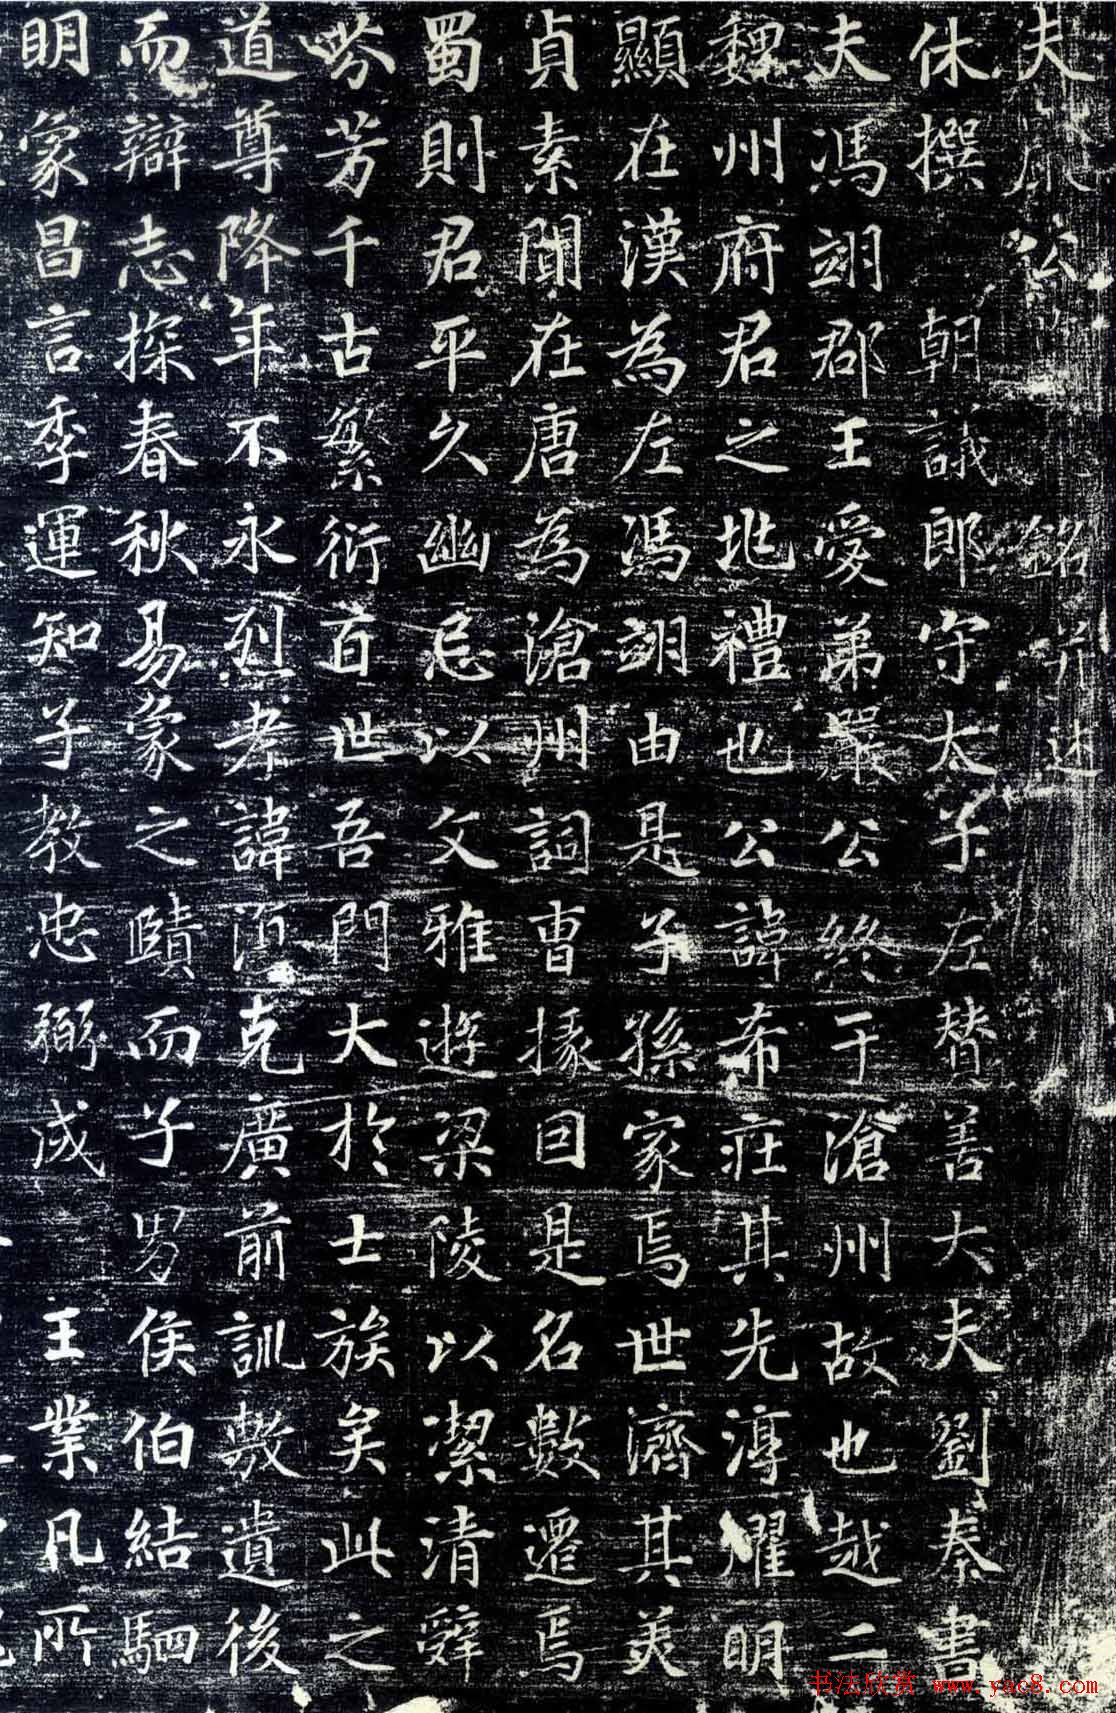 夫嚴公 銘并述
休撰 朝議郎守太子左贊善大夫劉秦書
夫馮翊郡王愛弟嚴公終于滄州故也越二
魏州府君之地禮也公諱希莊其先淳耀明
顯在漢為左馮翊由是子孫家焉世濟其美
貞素聞在唐為滄州詞曹掾因是名數遷焉
蜀則君平久幽忌以文雅遊梁陵以潔清辭
芬芳千古繁衍百世吾門大於士族矣此之
道尊降年不永烈考諱 克廣前訓 遺後
而辯志探春秋易象之賾而子男侯伯結駟
明象昌言季運知子教忠弼成 王業凡所
书法欣赏 www.yac8.com